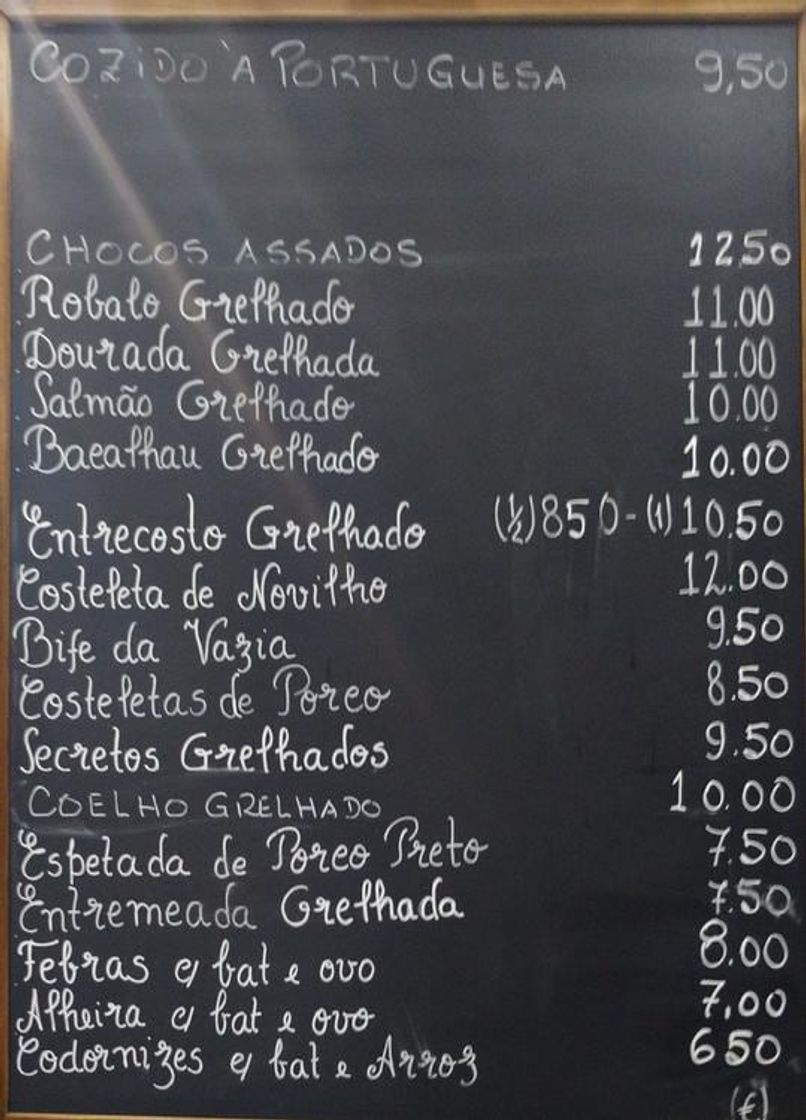 COZIDO À PORTUGUESA 9,50
CHOCOS ASSADOS 12.50
Robalo Grelhado 11.00
Dourada Grelhada 11.00
Salmão Grelhado 10.00
Bacalhau Grelhado 10.00
Entrecosto Grelhado (½)850-(1)10.50
Costeleta de Novilho 12.00
Bife da Vazia 9.50
Costeletas de Porco 8.50
Secretos Grelhados 9.50
COELHO GRELHADO 10.00
Espetada de Porco Preto 7.50
Entremeada Grelhada 7.50
Febras c/ bat e ovo 8.00
Alheira c/ bat e ovo 7,00
Codornizes c/ bat e Arroz 650
(€)